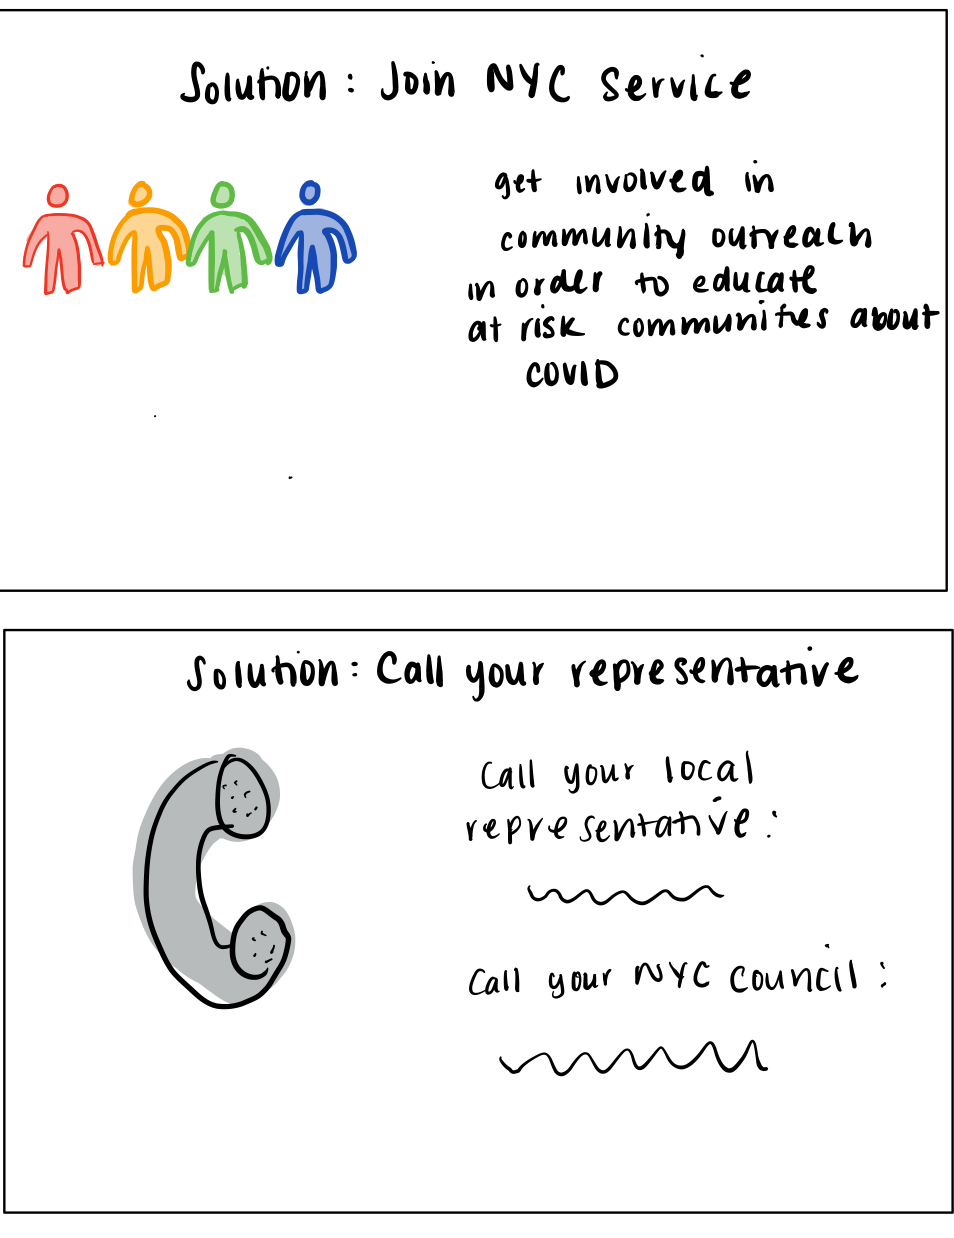 Solution: Join NYC Service
get involved in
community outreach
in order to educate
at risk communities about
COVID
Solution: Call your representative
Call your local
representative:
Call your NYC Council: